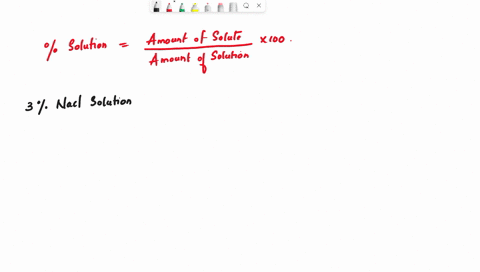 % Solution = Amount of Solute / Amount of Solution ×100.
3% Nacl Solution